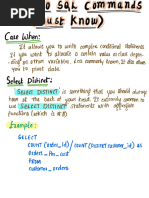 SQL Commands
ust Know)
Case When:
It allows you to write complex conditional statements
If you want to allocate a certain value or class
on other variables,
you to pivot data.
Select Distinct:
SELECT DISTINCT is something that you should always
have at the back of your head. It
use SELECT DISTINCT statements with
(like COUNT).
Example:
SELECT
COUNT (order_id) / COUNT (Distinct customer_id) as
orders_Per_cust
FROM
customer_orders